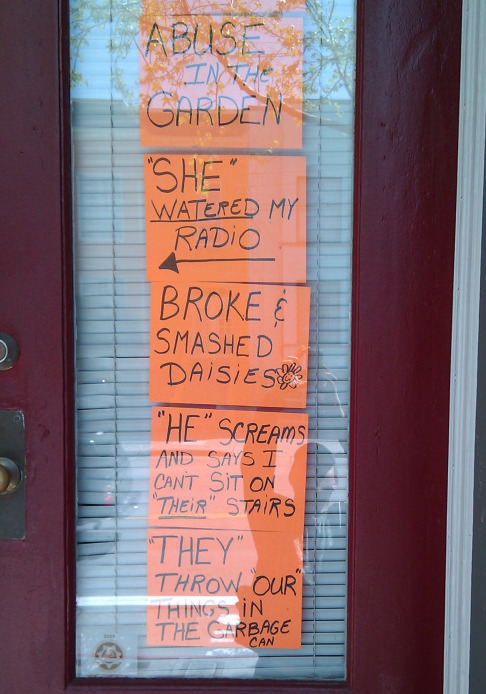 ABUSE
IN THE
GARDEN
"SHE"
WATERED MY
RADIO
BROKE &
SMASHED
DAISIES
"HE" SCREAMS
AND SAYS I
CANT SIT ON
"THEIR" STAIRS
"THEY"
THROW "OUR"
THINGS IN
THE GARBAGE
CAN